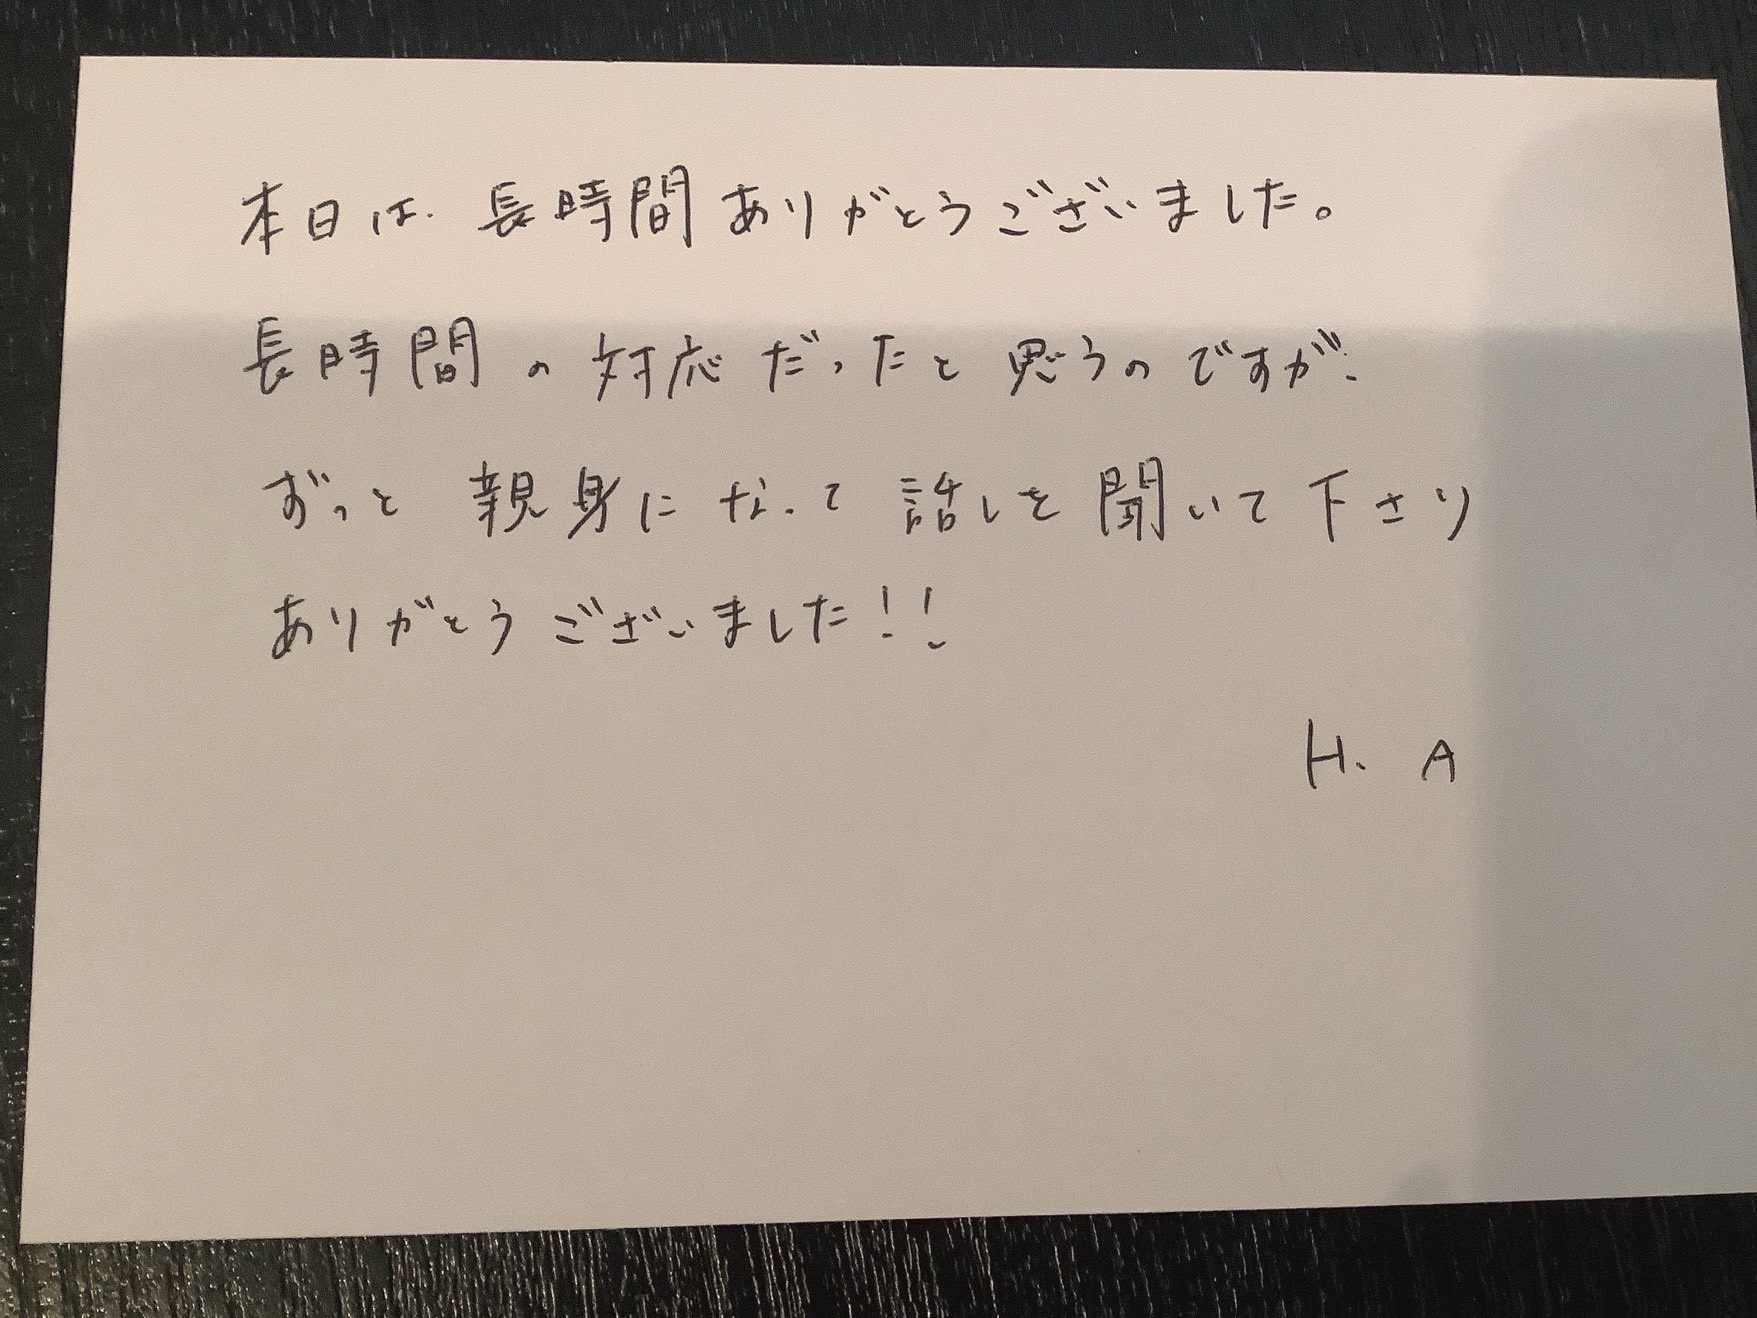 本日は、長時間ありがとうございました。
長時間の対応だったと思うのですが、
ずっと親身になって話しを聞いて下さり
ありがとうございました!!
H. A